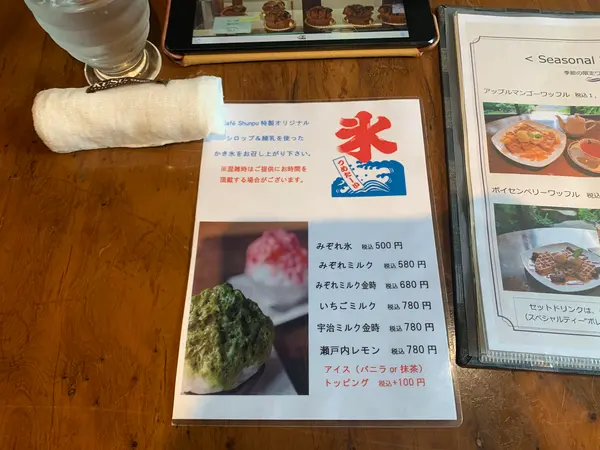 Café Shunpu 特製オリジナル
シロップ&練乳を使った
かき氷をお召し上がり下さい。
※混雑時はご提供にお時間を
頂戴する場合がございます。
氷
みぞれ氷 税込500円
みぞれミルク 税込580円
みぞれミルク金時 税込680円
いちごミルク 税込780円
宇治ミルク金時 税込780円
瀬戸内レモン 税込780円
アイス（バニラor抹茶）
トッピング 税込+100円
< Seasonal
季節の限定ワ
アップルマンゴーワッフル 税込1,
ボイセンベリーワッフル 税込
セットドリンクは、
(スペシャルティー"ボレ